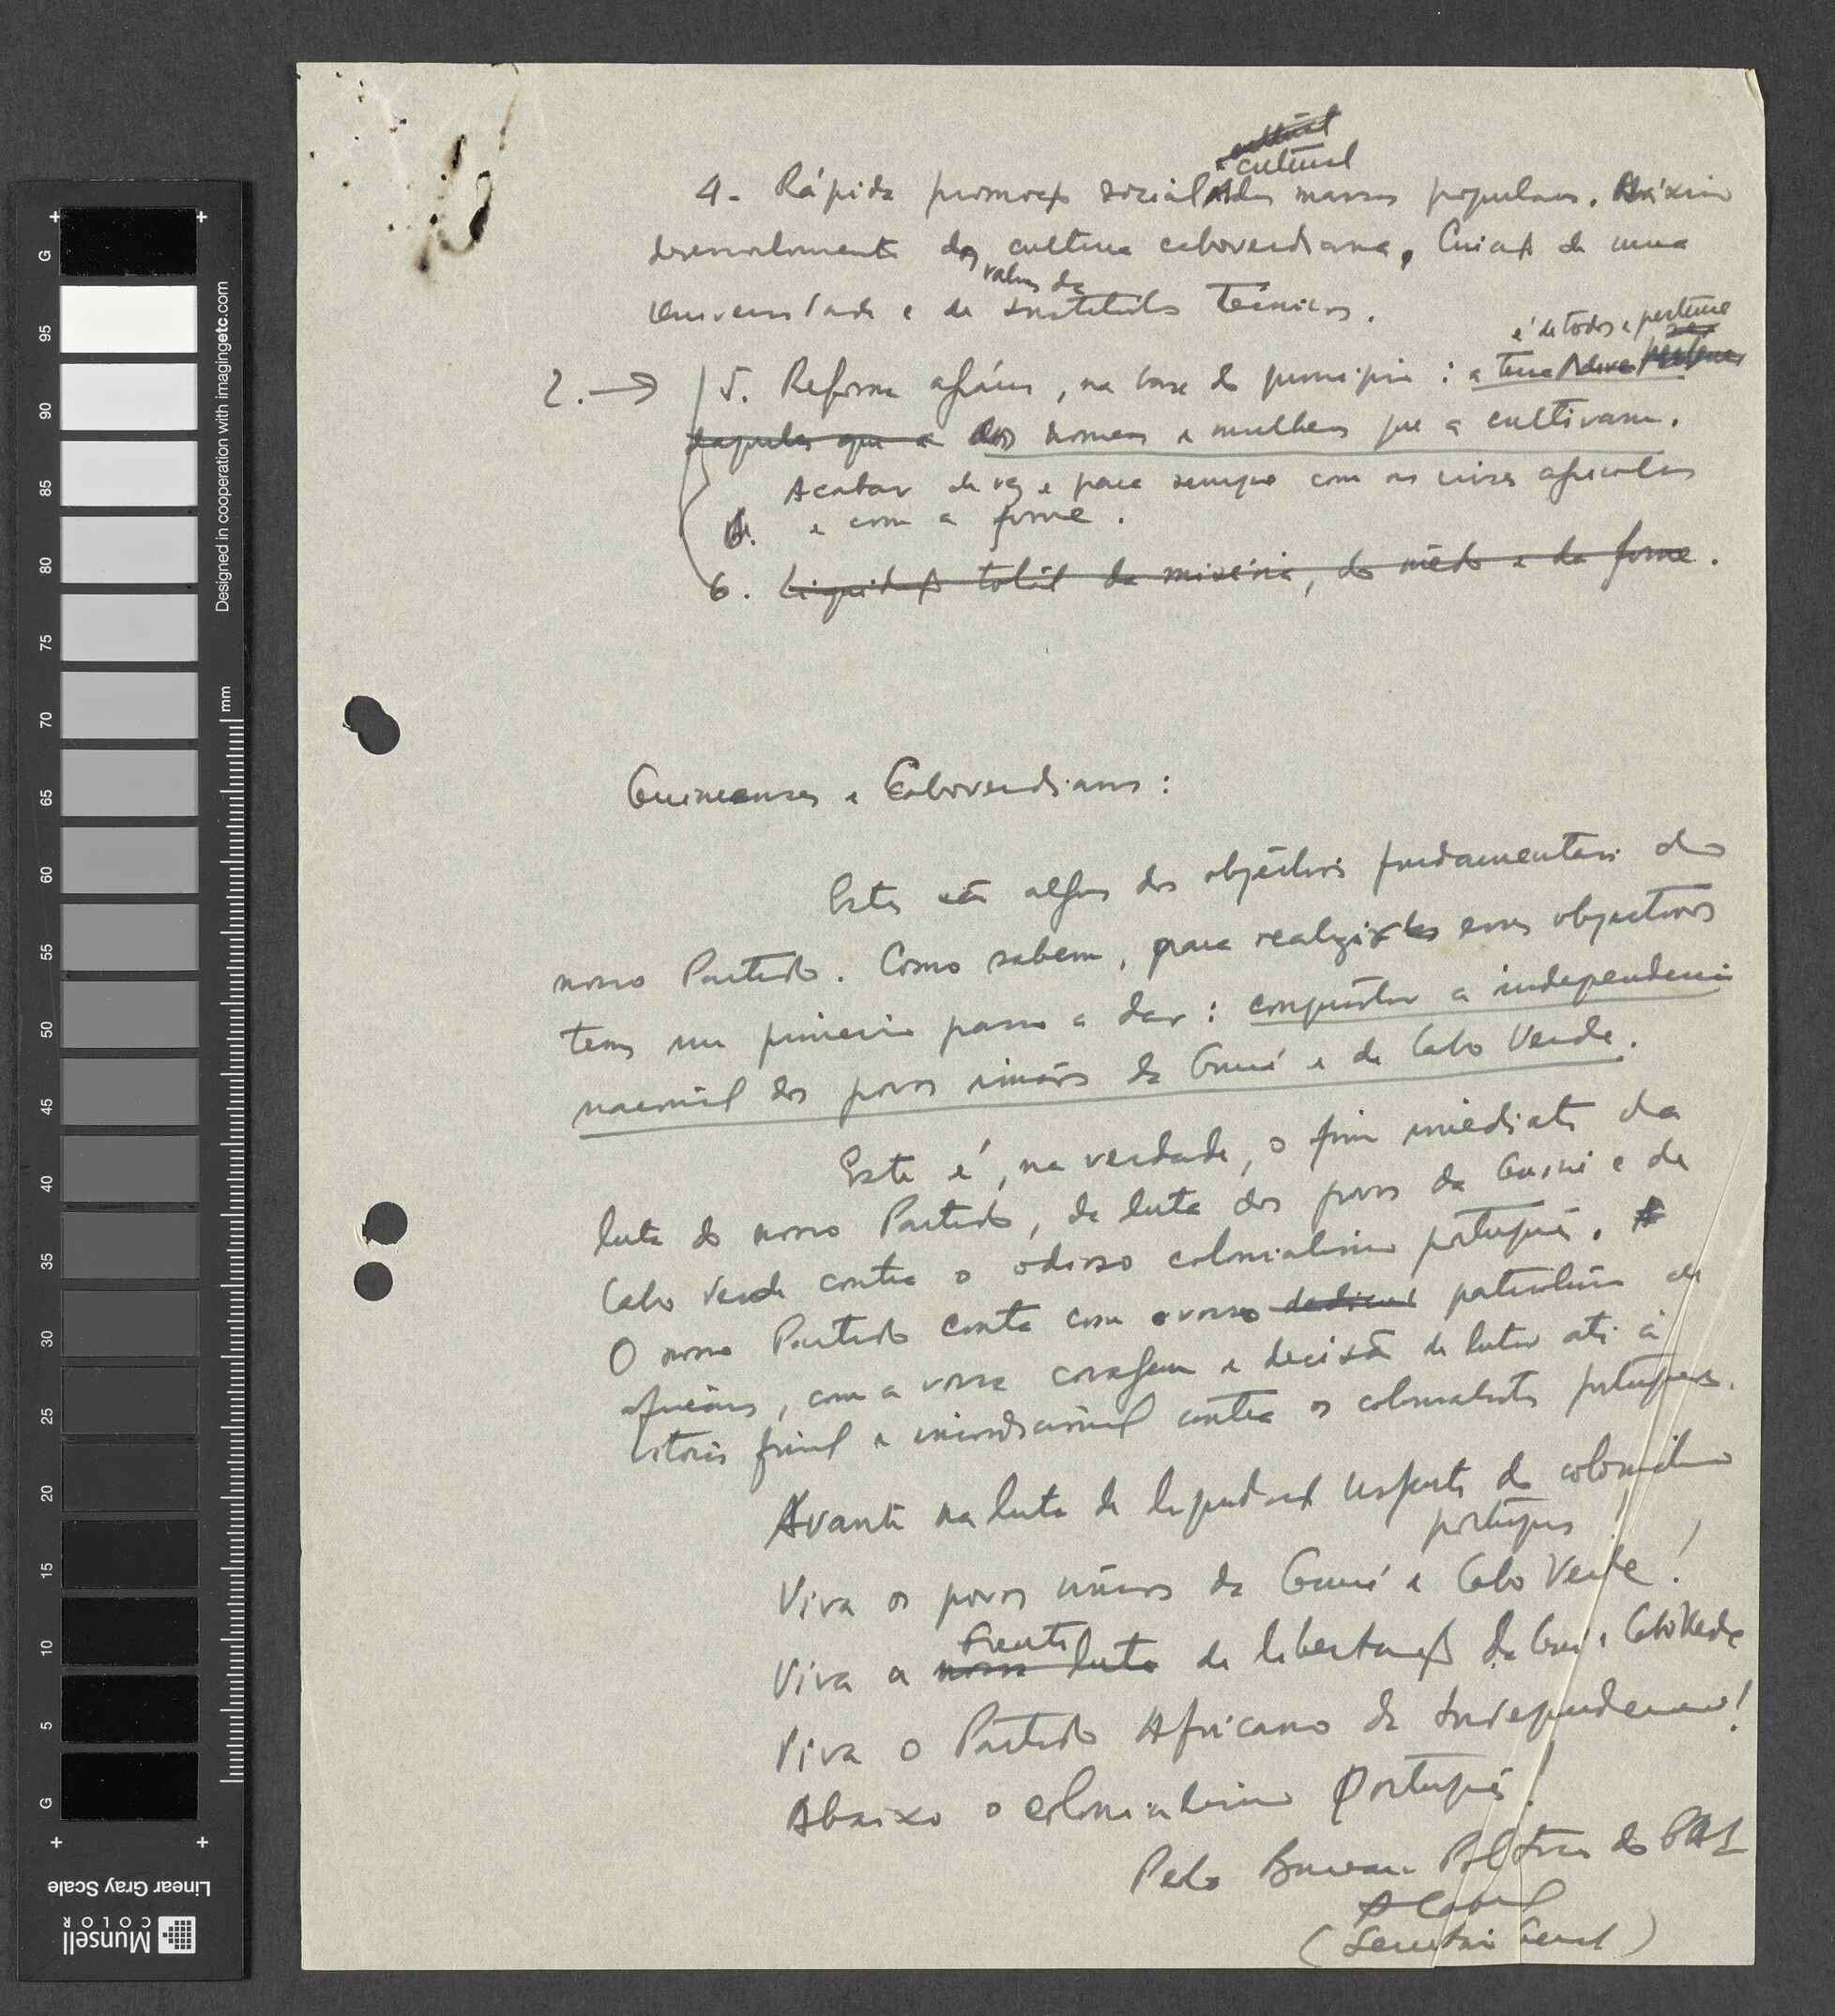 cultural
cultural
4. Rápida promoção social e das massas populares. Máximo
desenvolvimento dos cultura caboverdiana, Criação de uma
valores da
Universidade e de Institutos Técnicos.
é de todos e pertence
2. → 5. Reforma agrária, na base do princípio: a terra deve pertencer
daqueles que a aos homens e mulheres que a cultivam.
Acabar de vez e para sempre com as crises agrícolas
e com a fome.
6. Liquidação total da miséria, do mêdo e da fome.
Guineenses e Caboverdianos:
Estes são alguns dos objectivos fundamentais do
nosso Partido. Como sabem, para realizar esses objectivos
temos um primeiro passo a dar: conquistar a independência
nacional dos povos irmãos da Guiné e de Cabo Verde.
Este é, na verdade, o fim imediato da
luta do nosso Partido, da luta dos povos da Guiné e de
Cabo Verde contra o odioso colonialismo português.
O nosso Partido conta com o vosso patriotismo de
africanos, com a vossa coragem e decisão de lutar até à
vitória final e incondicional contra os colonialistas portugueses.
Avante na luta de liquidação urgente do colonialismo
português!
Viva os povos irmãos da Guiné e Cabo Verde!
Frente
Viva a nossa luta de libertação da Guiné e Cabo Verde
Viva o Partido Africano da Independencia!
Abaixo o colonialismo Português!
Pelo Bureau Político do PAI
A Cabral
(Secretário Geral)
G 95 90 85 80 75 70 65 60 55 50 45 40 35 30 25 20 15 10 5 G
Designed in cooperation with imagingetc.com
mm
Linear Gray Scale
Munsell
COLOR